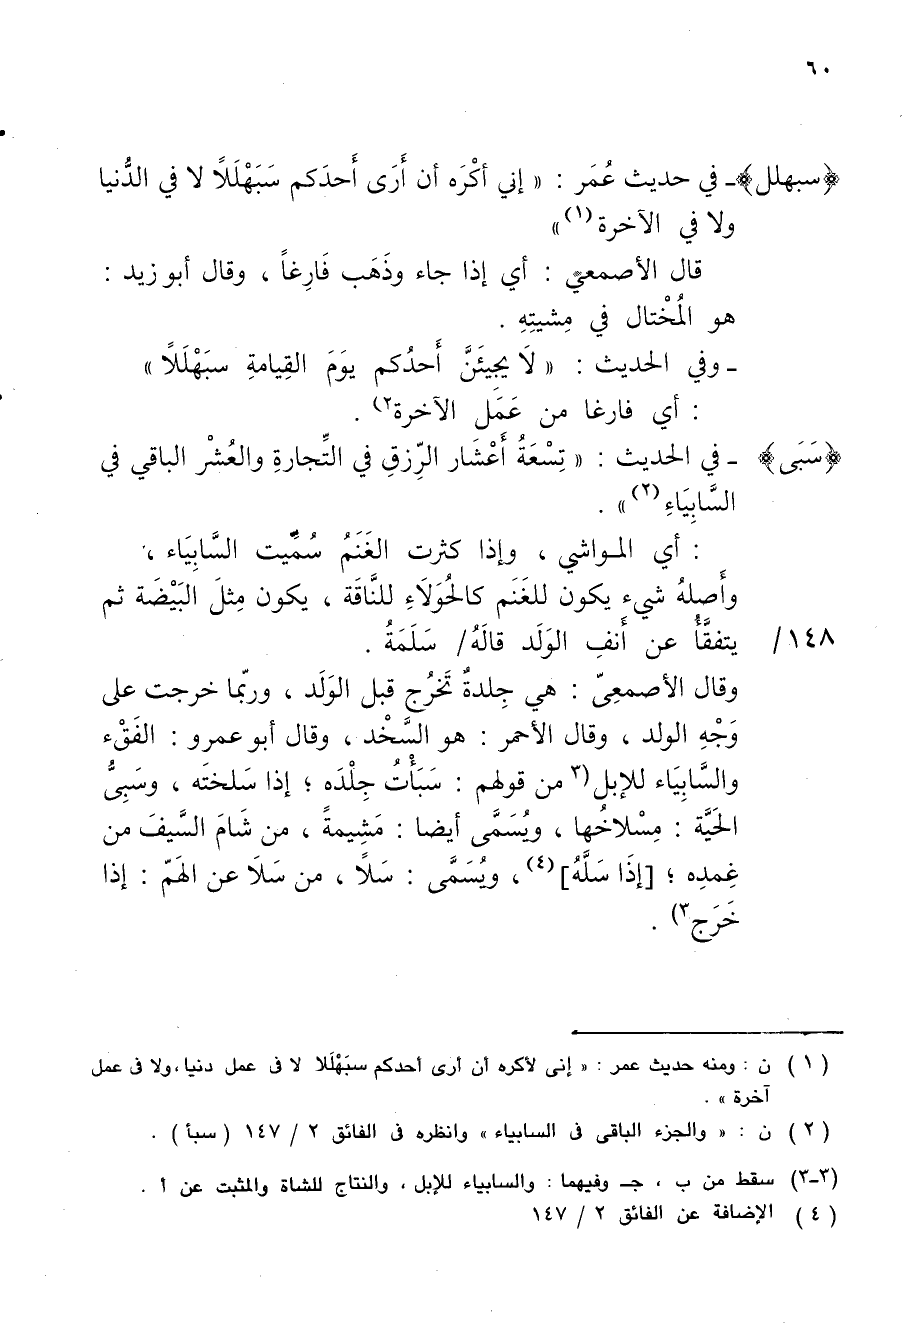 ٦٠
﴿سبهلل﴾ـ في حديث عُمَر : « إني أكْرَه أن أَرَى أَحدَكم سَبَهْلَلًا لا في الدُّنيا
ولا في الآخرة(١)»
قال الأصمعي : أي إذا جاء وذَهَب فَارِغاً ، وقال أبو زيد :
هو المُخْتال في مِشيتِهِ .
ـ وفي الحديث : « لَا يَجيئَنَّ أَحدُكم يوَمَ القِيامةِ سبَهْلَلاً »
: أي فارغا من عَمَل الآخرة٢) .
﴿سَبَى﴾ ـ في الحديث : « تِسْعَةُ أَعْشَار الرِّزقِ في التِّجارةِ والعُشْر الباقي في
السَّابِيَاءِ(٢)» .
: أي المواشي ، وإذا كثرت الغَنَمُ سُمِّيت السَّابِيَاء ،
وأَصلهُ شيء يكون للغَنَم كالحُوَلَاءِ للنَّاقَة ، يكون مِثلَ البَيْضَة ثم
يتفقَّأُ عن أَنفِ الوَلَد قالَهُ/ سَلَمَةُ . /١٤٨
وقال الأصمعِىّ : هي جِلدةٌ تَخرُج قبل الوَلَد ، وربّما خرجت على
وَجْهِ الولد ، وقال الأحمر : هو السَّخْد ، وقال أبو عمرو : الفَقْء
والسَّابِيَاء للإبل(٣ من قولهم : سَبَأْتُ جِلْدَه ؛ إذا سَلختَه ، وسَبِىُّ
الحَيَّة : مِسْلاخُها ، ويُسَمَّى أيضا : مَشِيمةً ، من شَامَ السَّيفَ من
غِمدِه ؛ [إذَا سَلَّهُ](٤)، ويُسَمَّى : سَلًا ، من سَلَا عن الهَمّ : إذا
خَرَج٣) .
( ١ ) ن : ومنه حديث عمر : « إنى لأكره أن أرى أحدكم سبَهْلَلا لا فى عمل دنيا ، ولا فى عمل
آخرة » .
( ٢ ) ن : « والجزء الباقى فى السابياء » وانظره فى الفائق ٢ / ١٤٧ ( سبأ ) .
(٣-٣) سقط من ب ، جـ وفيهما : والسابياء للإبل ، والنتاج للشاة والمثبت عن أ .
( ٤ ) الإضافة عن الفائق ٢ / ١٤٧